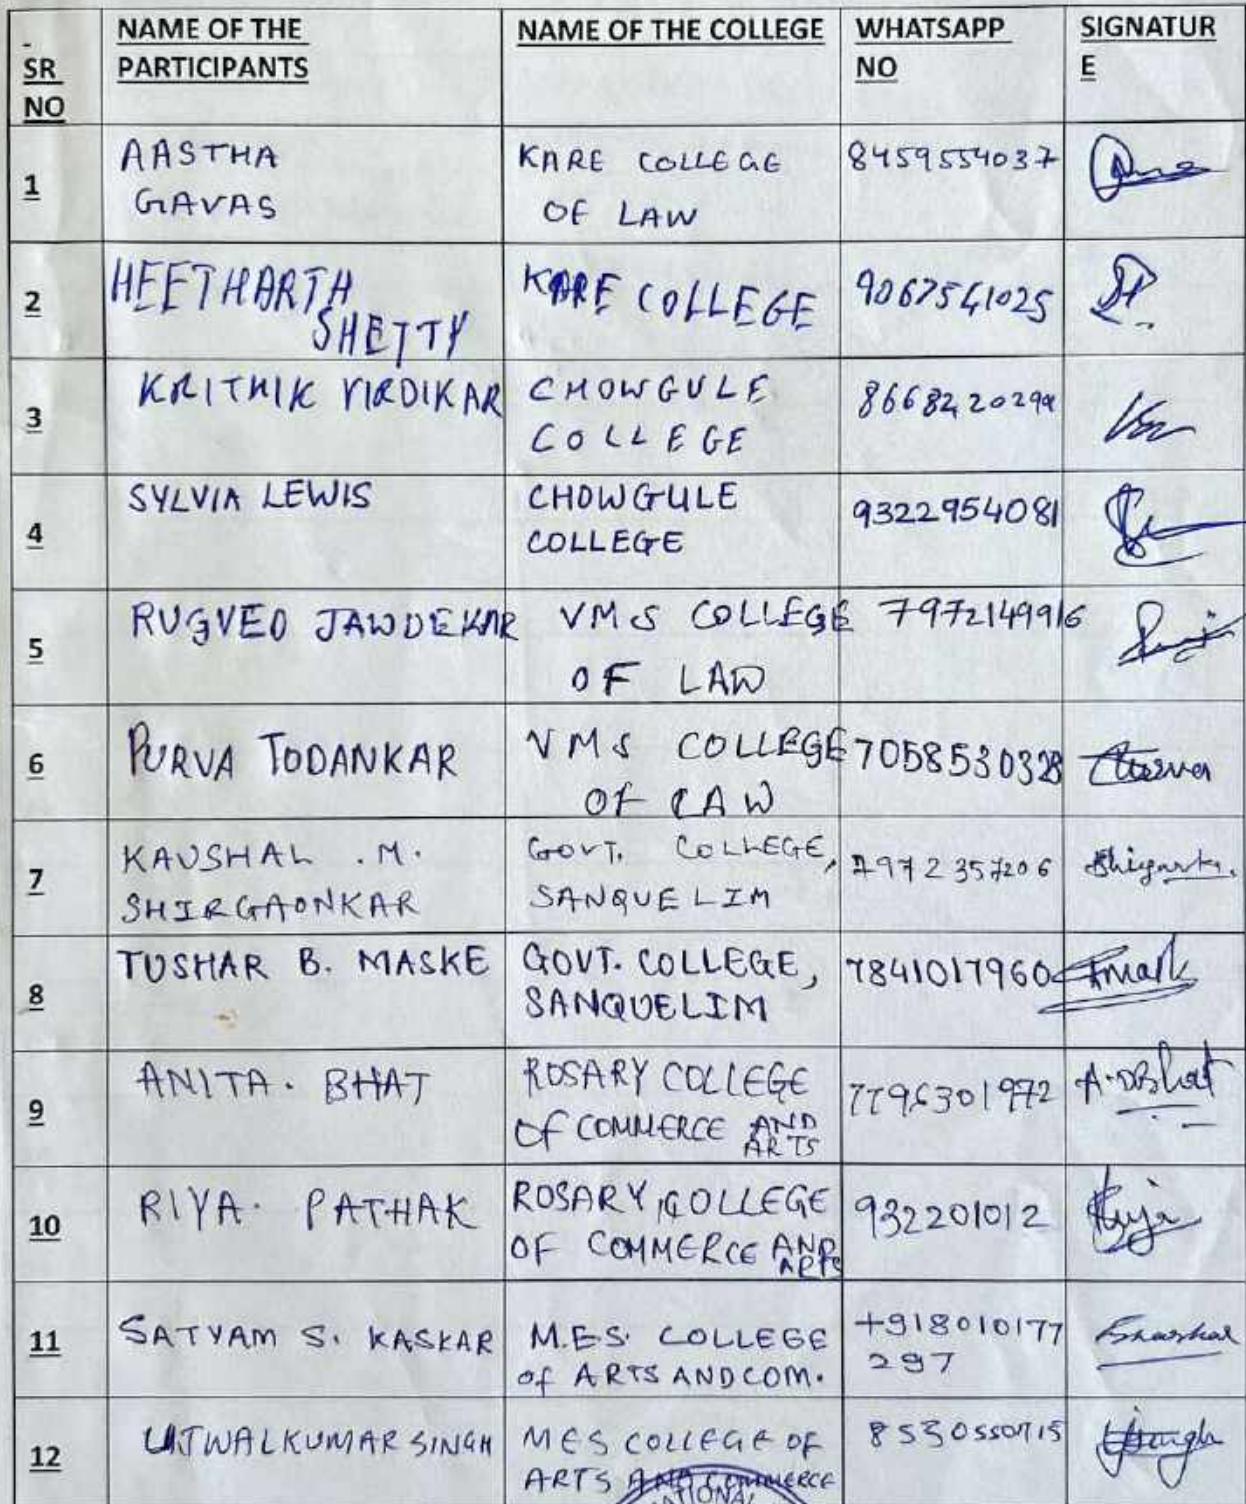 SR NO
NAME OF THE PARTICIPANTS
NAME OF THE COLLEGE
WHATSAPP NO
SIGNATURE
1
AASTHA
GAVAS
KARE COLLEGE
OF LAW
8459554037
2
HEETHARTH
SHETTY
KARE COLLEGE
9067541025
3
KRITHIK VIRDIKAR
CHOWGULE
COLLEGE
8668220299
4
SYLVIA LEWIS
CHOWGULE
COLLEGE
9322954081
5
RUGVED JAWDEKAR
VMS COLLEGE
OF LAW
7972149916
6
PURVA TODANKAR
VMS COLLEGE
OF LAW
7058530328
7
KAUSHAL .M.
SHIRGAONKAR
GOVT. COLLEGE,
SANQUELIM
7972357206
8
TUSHAR B. MASKE
GOVT. COLLEGE,
SANQUELIM
7841017960
9
ANITA. BHAT
ROSARY COLLEGE
OF COMMERCE AND
ARTS
7796301972
A.D Bhat
10
RIYA. PATHAK
ROSARY COLLEGE
OF COMMERCE AND
ARTS
932201012
11
SATYAM S. KASKAR
M.E.S. COLLEGE
of ARTS AND COM.
+918010177
297
12
UJWALKUMAR SINGH
MES COLLEGE OF
ARTS AND COMMERCE